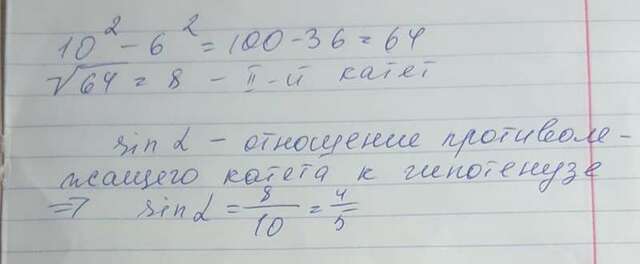 10² - 6² = 100 - 36 = 64
√64 = 8 - II-й катет
sin α - отношение противоле-
жащего катета к гипотенузе
=> sin α = 8/10 = 4/5